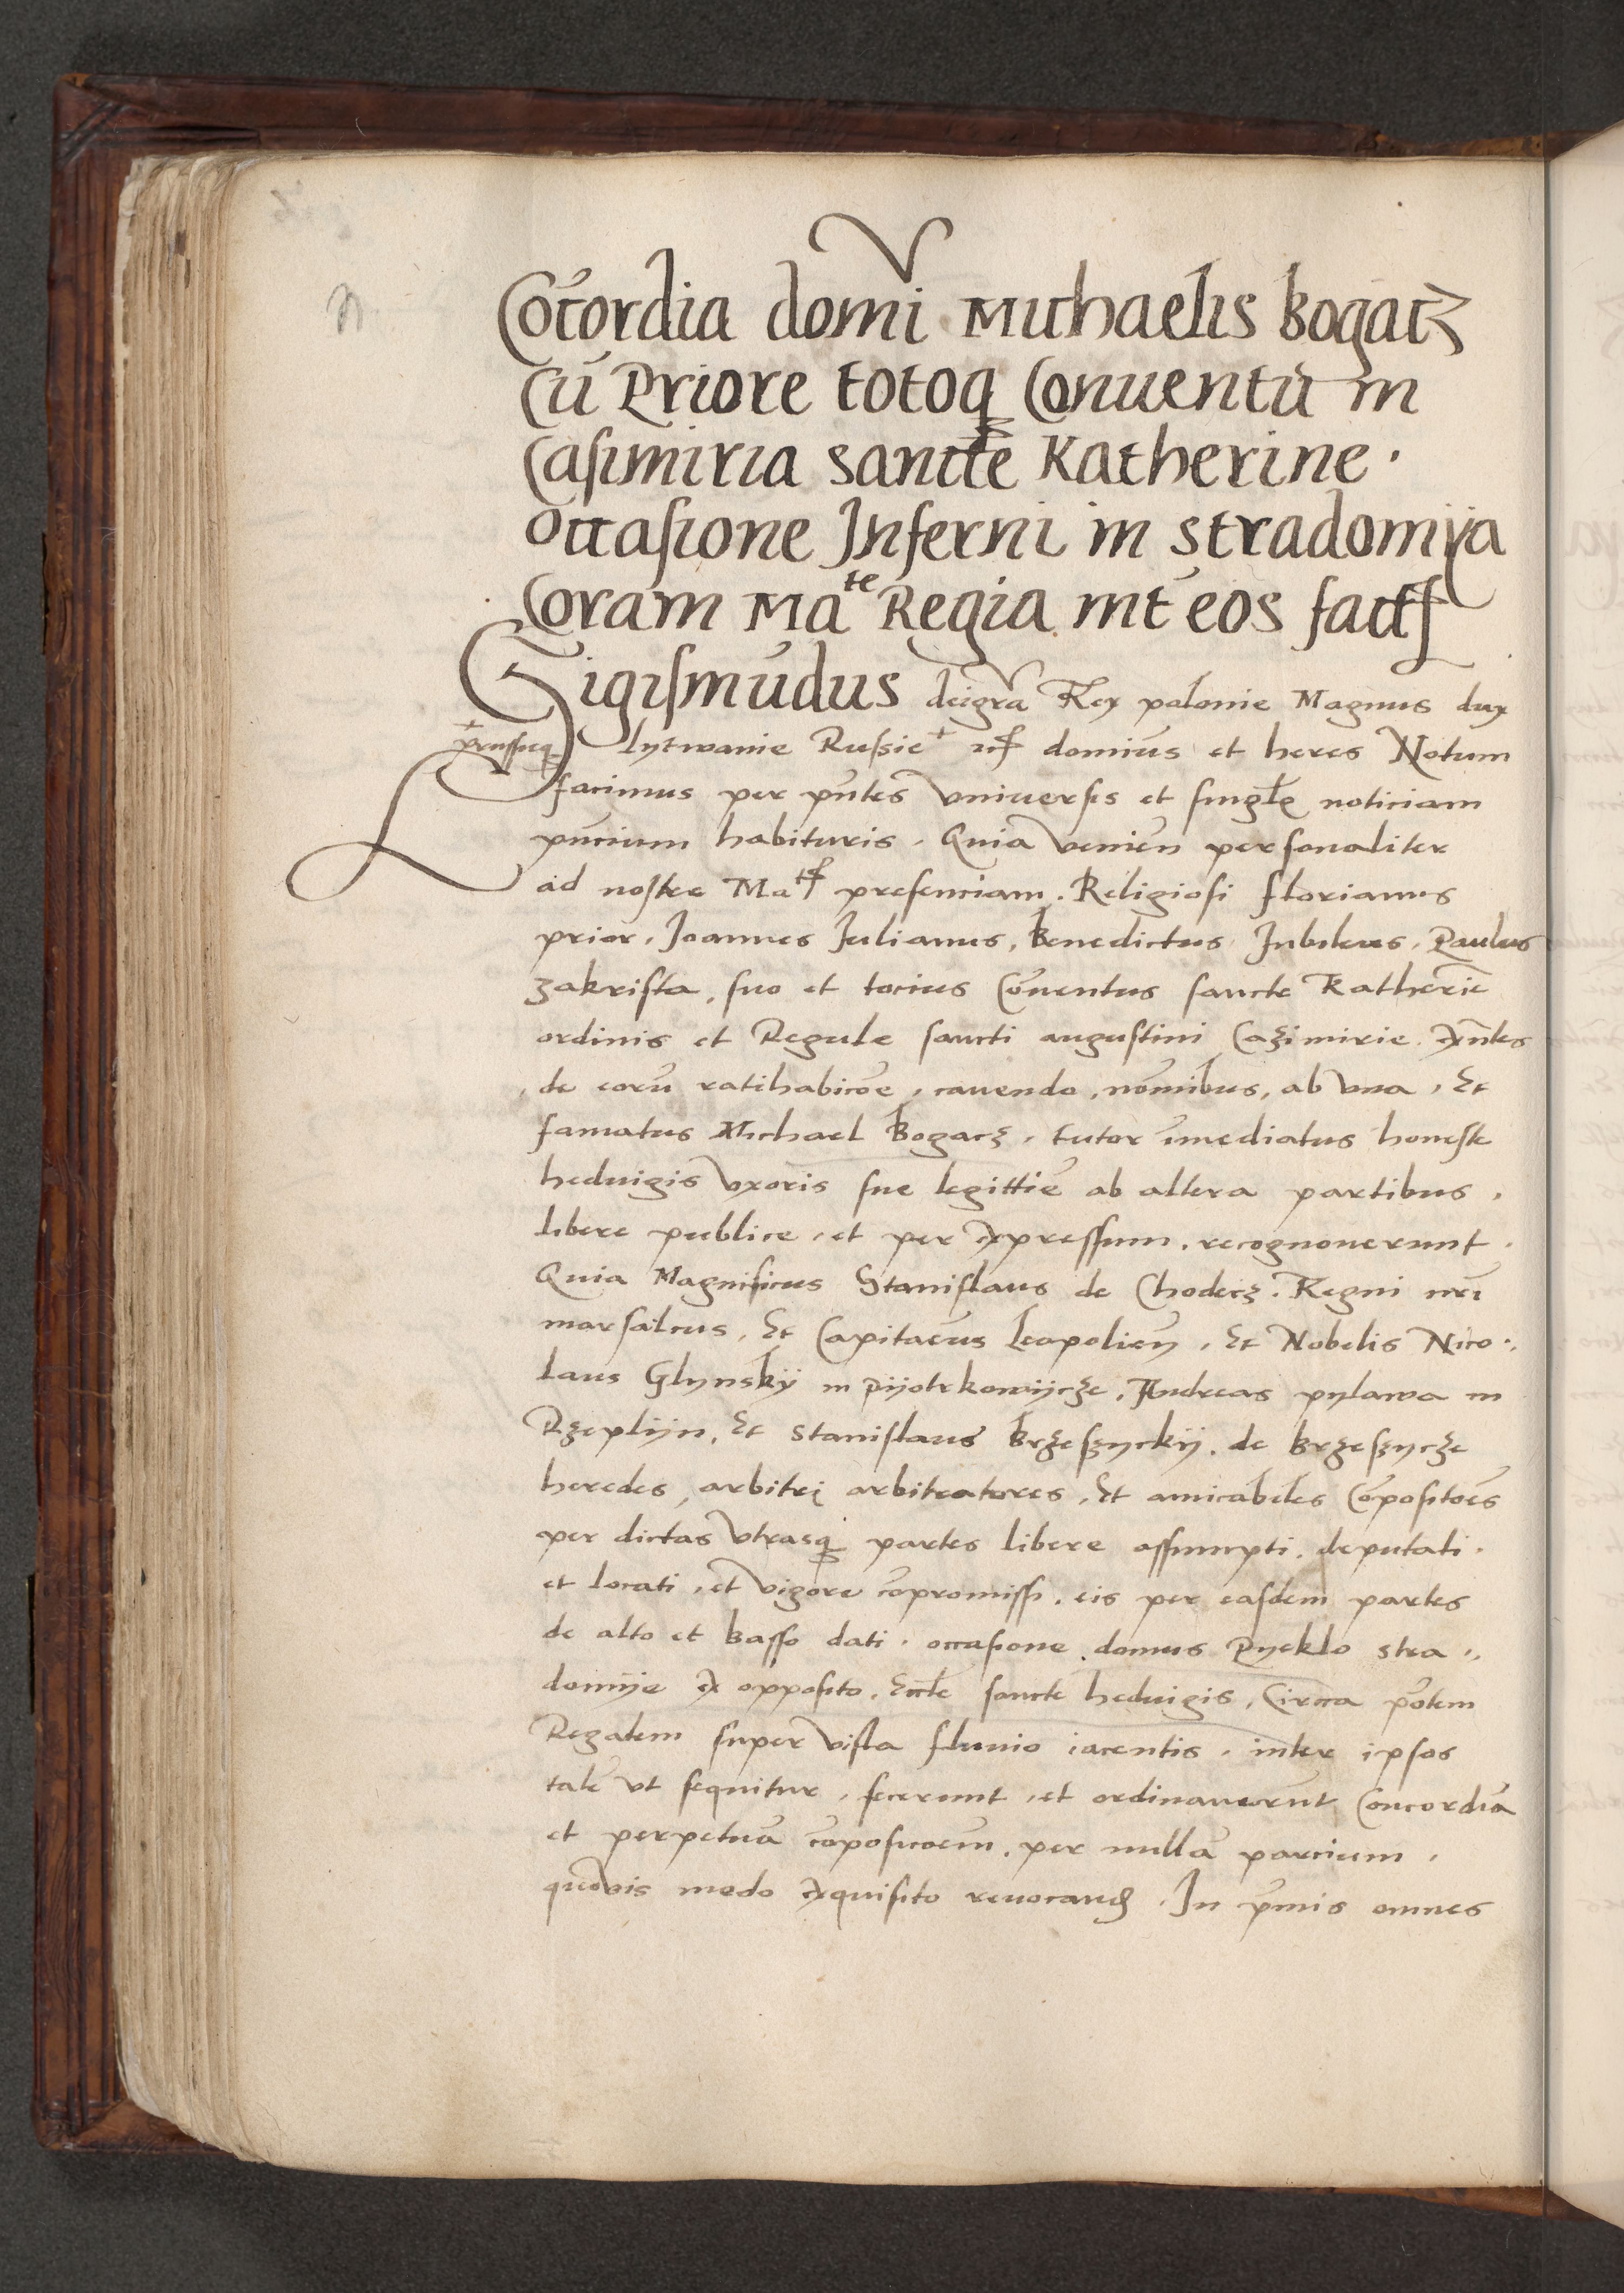 Cōcordia domi Michaelis Bogacz
Cū Priore totoq̨ Conuentū in
Casimiria sancte Katherine.
occasione Inferni in Stradomija
Coram Ma^te Regia int̄ eos fact
Sigismūdus dei gr̄a Rex polonie Magnus dux
prussieq̨ Lytwanie Russie + domīus et heres Notum
facimus per pn̄tes vniuersis et singl̄ noticiam
pn̄cium habituris. Quia venien̄ personaliter
ad nostre Ma^tis presenciam. Religiosi florianus
prior, Joannes Julianus, Benedictus Jubileus, Paulus
zakrista, suo et tocius Cōuentus sancte Katherīe
ordinis et Regule sancti augustini Cazimirie. Exn̄tes
de eorū ratihabicōe, cauendo, nōmibus, ab vna, Et
famatus Michael Bogacz, tutor īmediatus honeste
heduigis vxoris sue legittīe ab altera partibus,
libere publice, et per expressum, recognouerunt.
Quia Magnificus Stanislaus de Chodecz. Regni nr̄i
marsalcus, Et Capitaēus Leopolien̄, Et Nobelis Nico.,
laus Glynskÿ in Pijotrkowijcze, Andreas pylawa in
Rzeplijn, Et Stanislaus Brzeszyckij, de Brzeszycze
heredes, arbitri arbitratores, Et amicabeles Cōpositōes
per dictas vtrasq̨ partes libere assumpti, deputati.
et locati, et vigore cōpromissi, eis per easdem partes
de alto et basso dati. occasione domus Pyeklo Stra.,
domije ex opposito, Eccl̄e sancte heduigis, Circa pōtem
Regalem super visla fluuio iacentis, inter ipsos
talē vt sequitur, fecerunt, et ordinauerūt Concordiā
et perpetuā cōposicoēm, per nullā parcium,
quouis modo exquisito reuocand. In p̄mis omnes